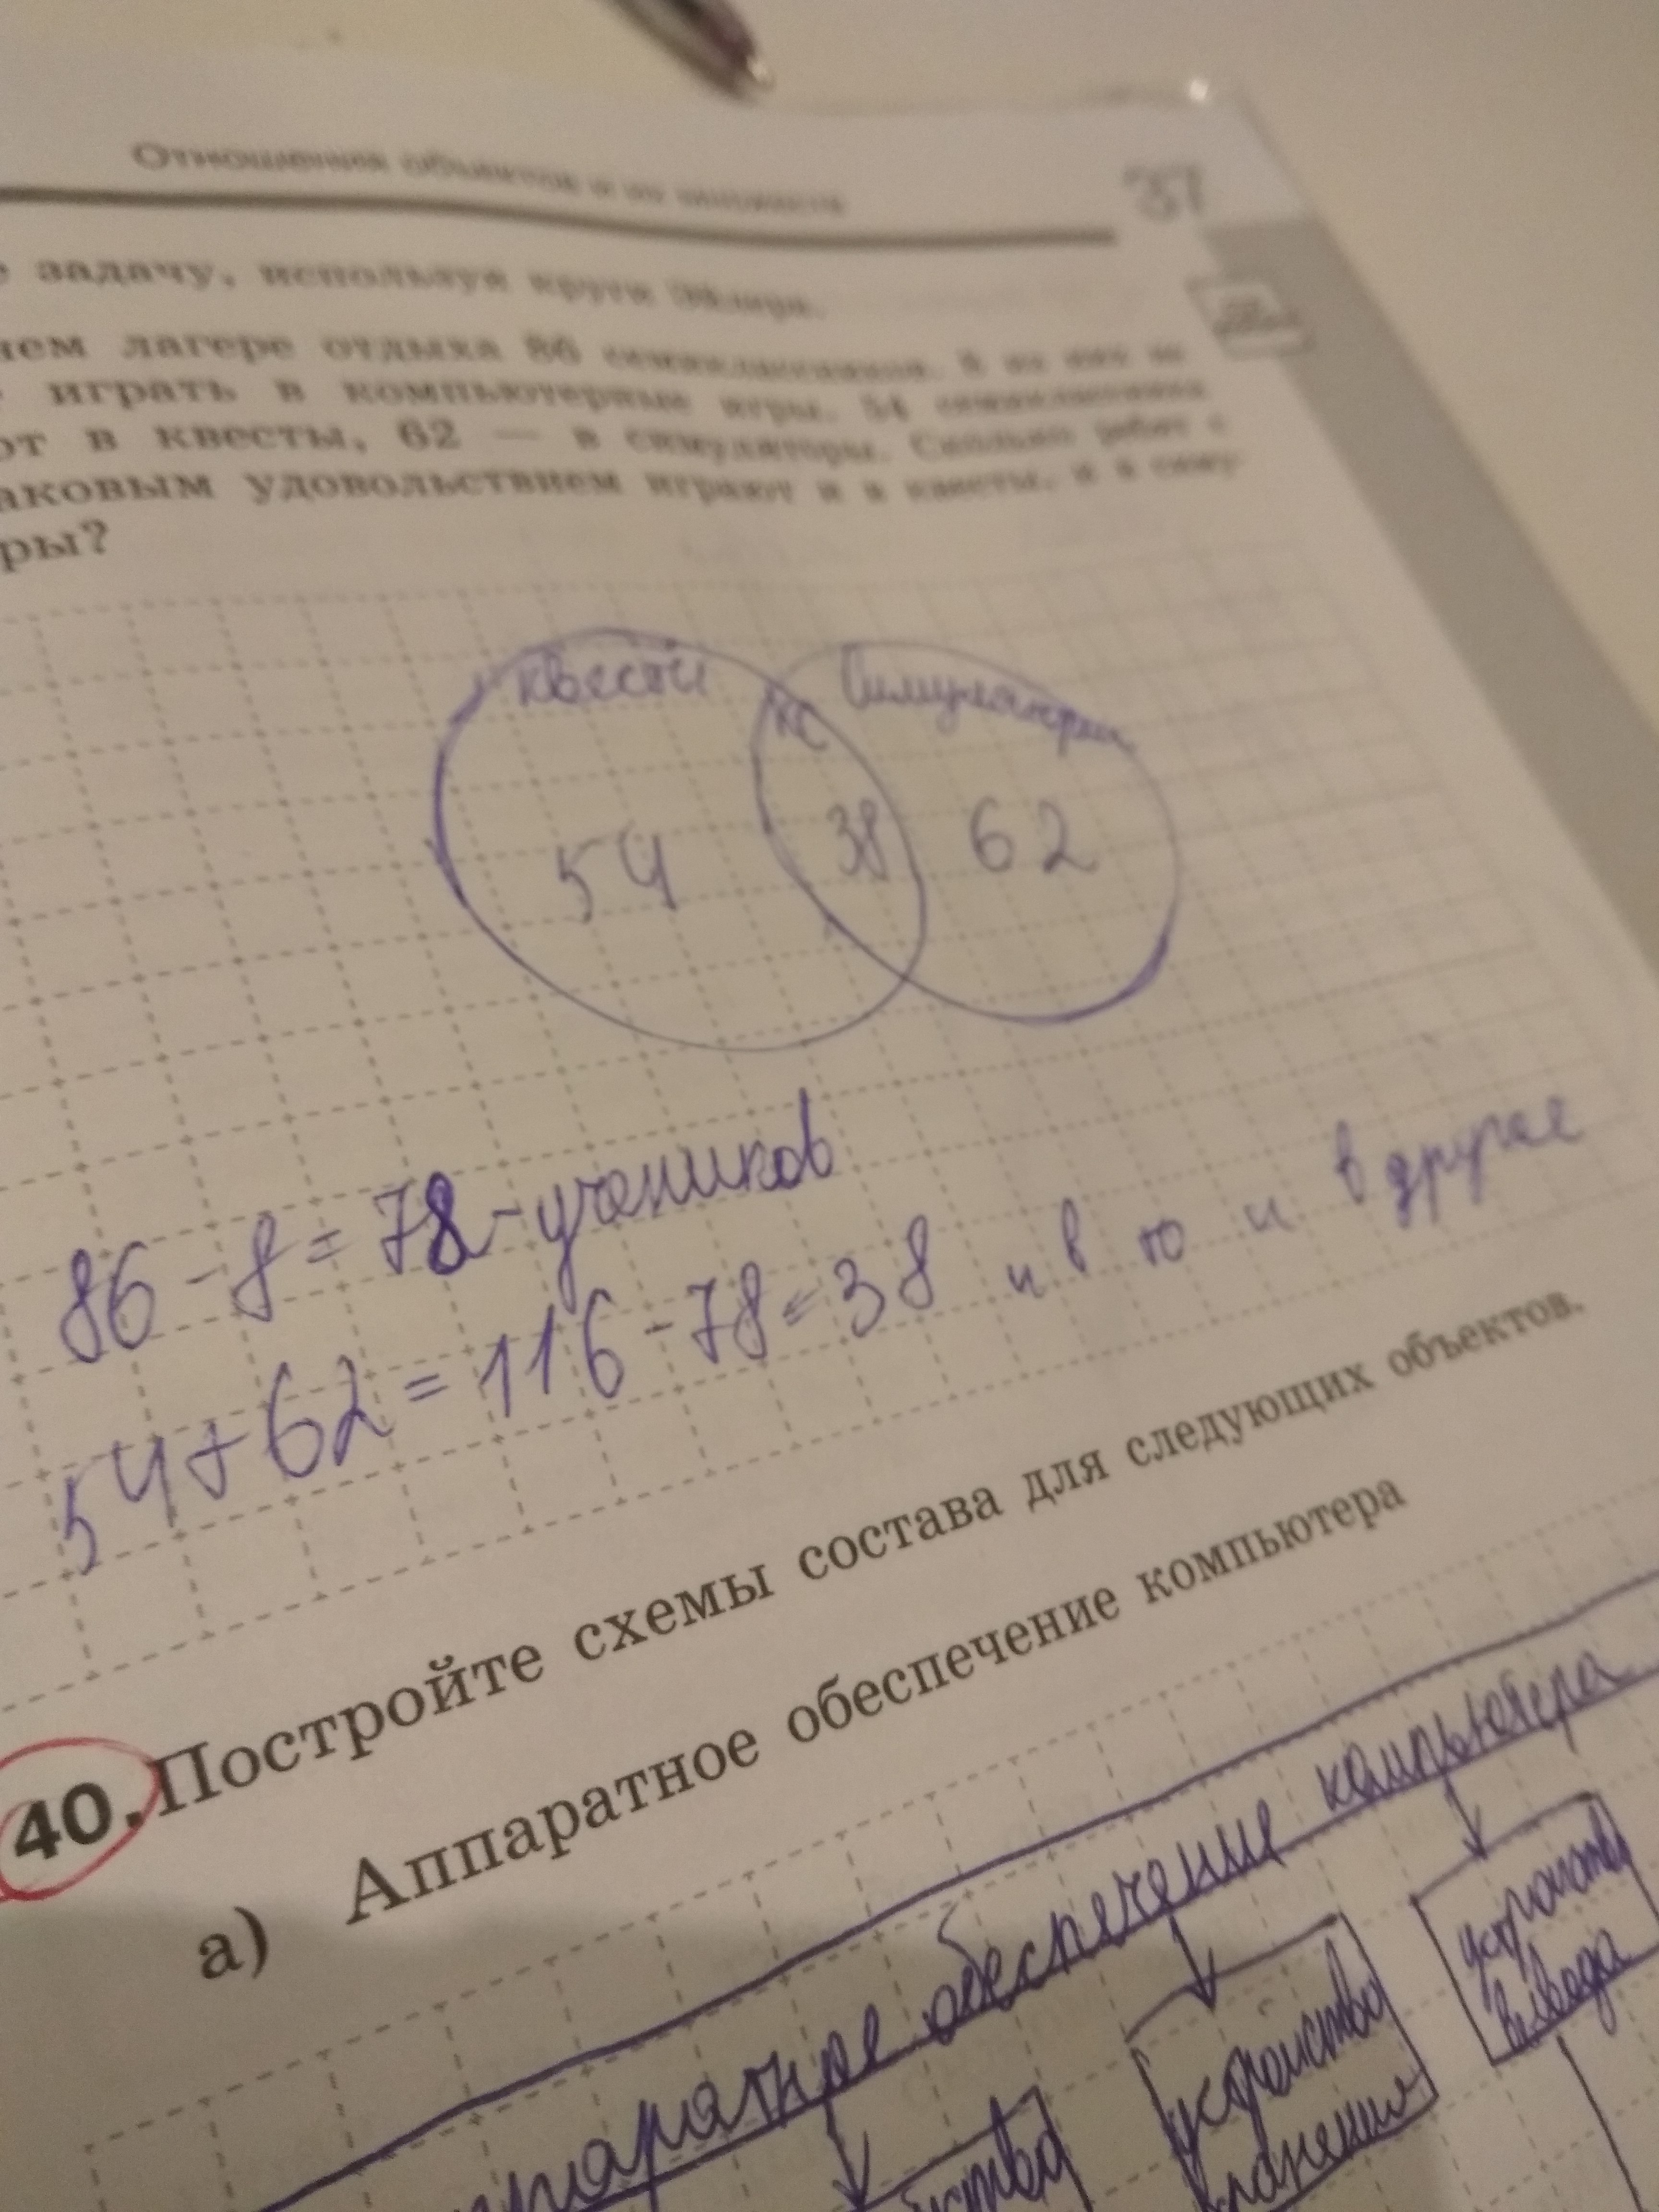 Отношения объектов и их множеств 37
задачу, используя круги Эйлера.
лагере отдыха 86 семиклассников. 8 из них не
играть в компьютерные игры. 54 семиклассника
в квесты, 62 — в симуляторы. Сколько ребят с
удовольствием играют и в квесты, и в симу-
ры?
квесты кс симуляторы
54 38 62
86-8=78-учеников
54+62=116-78=38 и в то и в другое
40. Постройте схемы состава для следующих объектов.
а) Аппаратное обеспечение компьютера
обеспечение компьютера
устройства
вывода
устройства
хранения